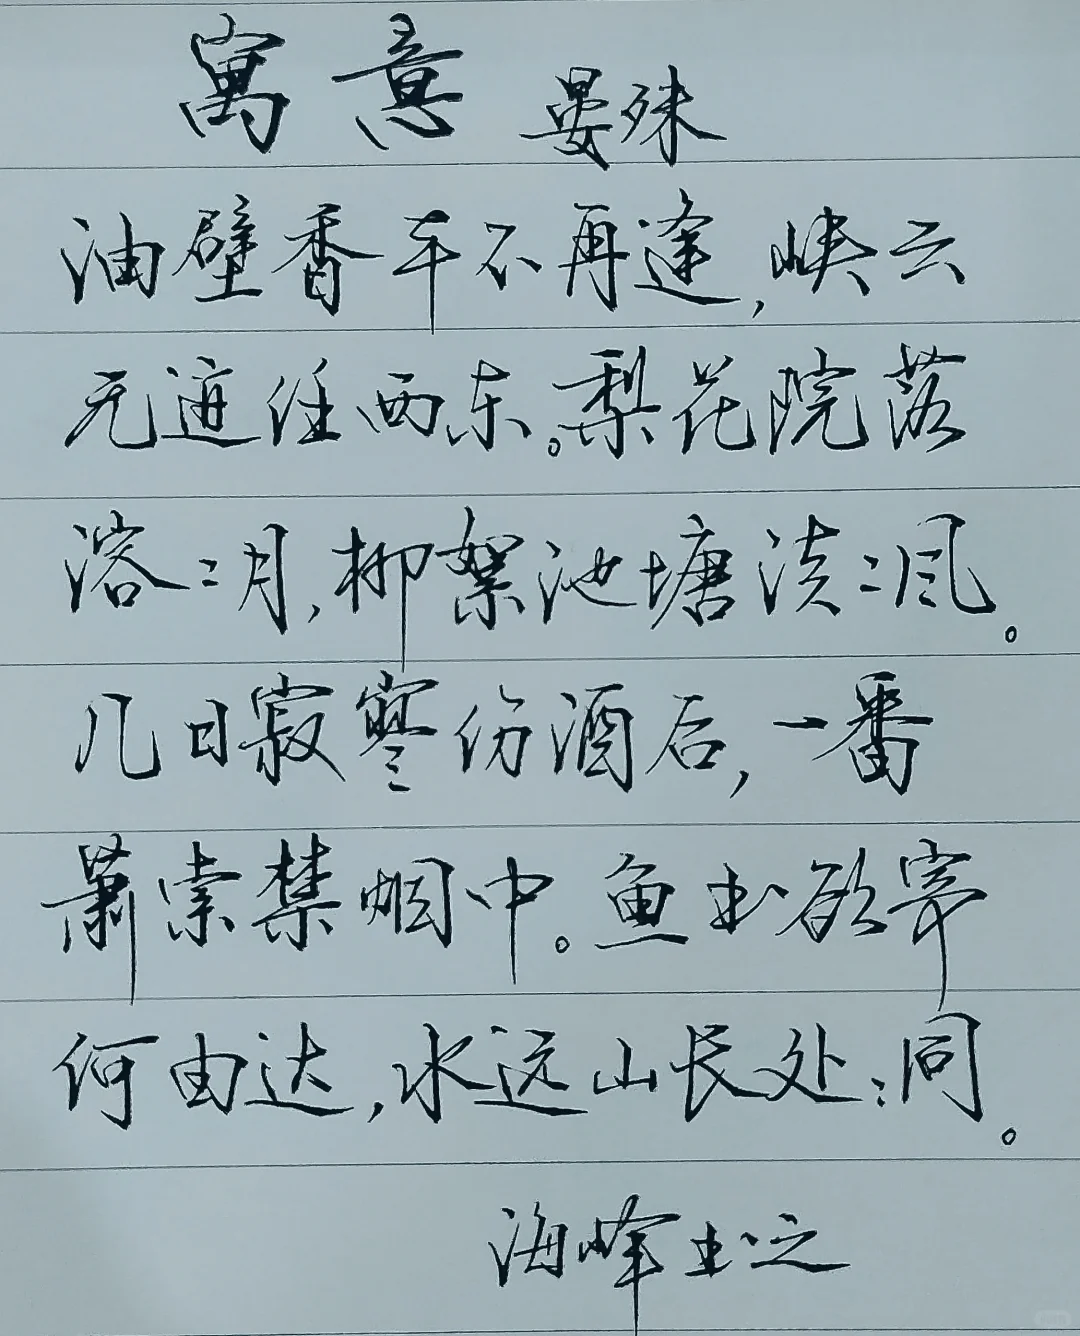 寓意 晏殊
油壁香车不再逢,峡云
无迹任西东。梨花院落
溶〻月,柳絮池塘淡〻风。
几日寂寥伤酒后,一番
萧索禁烟中。鱼书欲寄
何由达,水远山长处〻同。
海峰书之